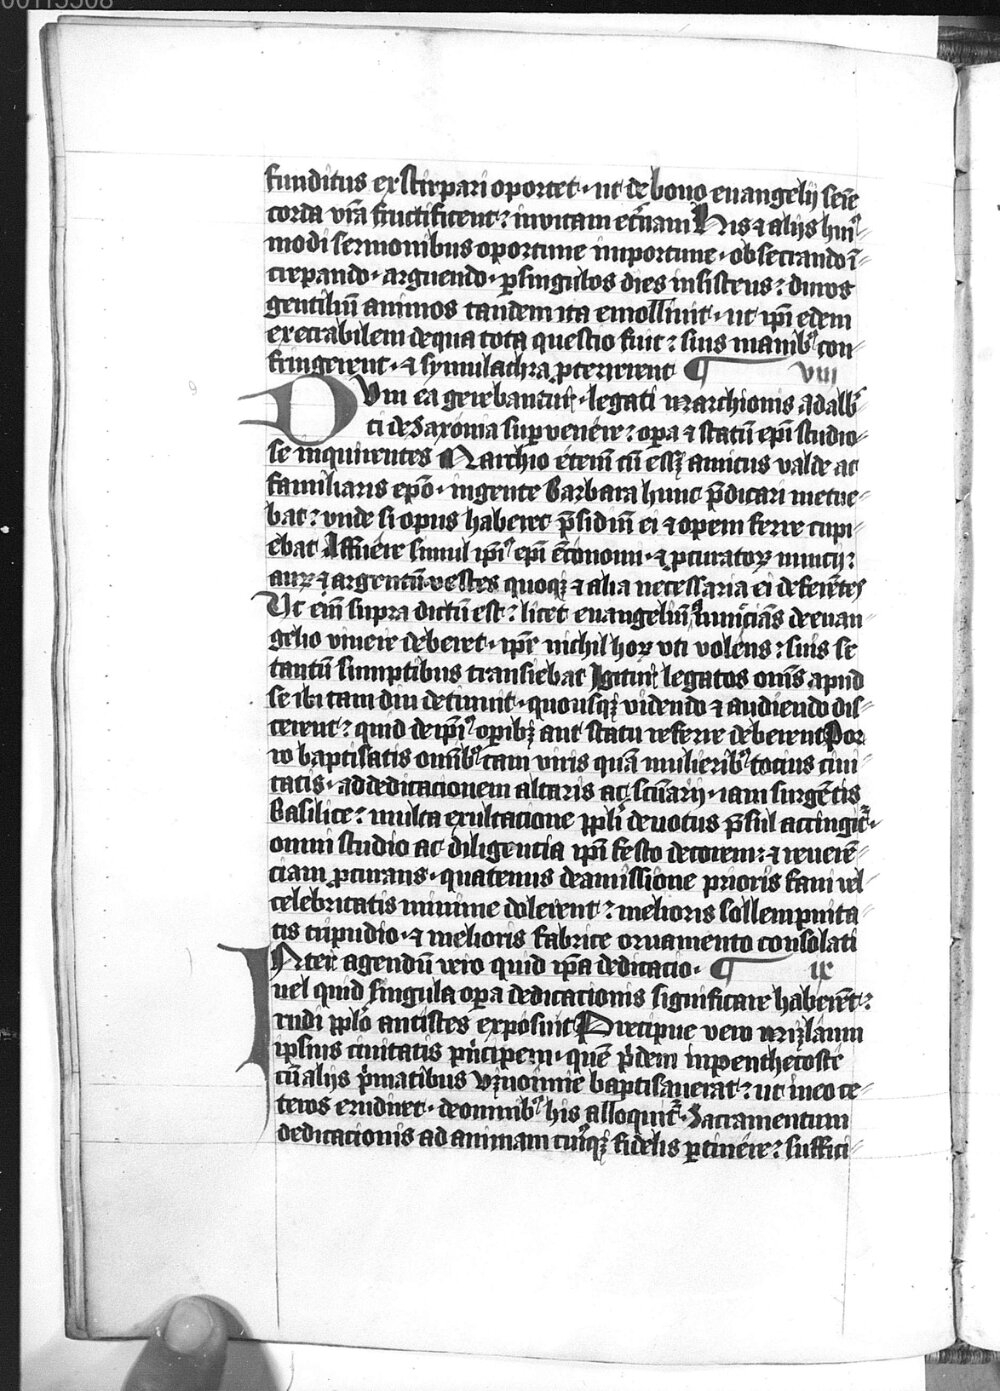 00113308
funditus exstirpari oportet · ut de bono euangelij seīe
corda vr̄a fructificent : in vitam et̄nam His ⁊ alijs hui⁹-
modi sermonibus oportune importune · obsecrando ī-
crepando · arguendo · ꝑ singulos dies insistens : duros
gentiliū animos tandem ita emolliuit · ut ip̄i edem
execrabilem de qua tota questio fuit : suis manib⁹ con-
fringerent · ⁊ symulachra ꝓtererent ¶ viii
DVm ea gerebantur · legati marchionis adalb̄-
ti de Saxonia superuenēre : oꝑa ⁊ statū ep̄i studio-
se inquirentes Marchio etenī cū essꝫ amicus valde ac
familiaris ep̄o · in gente Barbara hunc p̄dicari metue-
bat : vnde si opus haberet p̄sidiū ei ⁊ opem ferre cupi-
ebat Affuēre simul ip̄i⁹ ep̄i ēconomi · ⁊ ꝓcuratoꝝ nuncij :
auꝝ ⁊ argentū · vestes quoqꝫ ⁊ alia necessaria ei deferētes
Vt em̄ supra dictū est : licet euangeliū ānūciās de euan-
gelio viuere deberet · ip̄e nichil hoꝝ vti volens : suis se
tantū sumptibus transiebat Igitur legatos om̄s apud
se ibi tam diu detinuit · quousqꝫ videndo ⁊ audiendo dis-
cerent : quid de ip̄i⁹ oꝑibꝫ aut statu referre deberent Por
ro baptisatis om̄ib⁹ tam viris quā mulierib⁹ totius ciui-
tatis · ad dedicacionem altaris ac sc̄uarij · iam surgētis
Basilice : multa exultacione ppl̄i deuotus p̄sul accingit̄ ·
omni studio ac diligencia ip̄i festo decorem : ⁊ reuerē-
ciam ꝓcurans · quatenus de amissione prioris fani uel
celebritatis minime dolerent : melioris sollempnita-
tis tripudio · ⁊ melioris fabrice ornamento consolati
INter agendū vero quid ip̄a dedicacio · ¶ ix
uel quid singula oꝑa dedicacionis significare haberēt :
rudi pplo antistes exposuit Precipue vero mizlaum
ipsius ciuitatis p̄ncipem · quē p̄dem in penthecoste
cū alijs p̄matibus vznoimie baptisauerat : ut in eo ce-
teros erudiret · de omnib⁹ his alloquit̄ · Sacramentum
dedicacionis ad animam cuiꝰqꝫ fidelis ꝑtinēre : suffici-